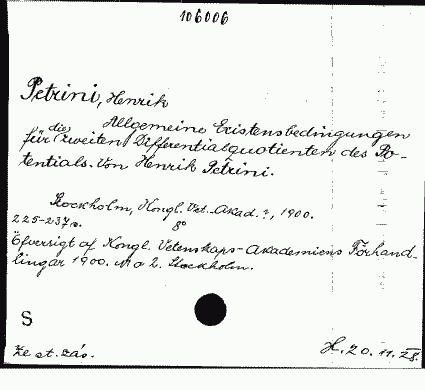 106006
Petrini, Henrik
Allgemeine Existensbedingungen
für die zweiten Differentialquotienten des Po-
tentials. Von Henrik Petrini.
Stockholm, Kongl. Vet. Akad.?, 1900.
225-237 s. 8°
Öfversigt af Kongl. Vetenskaps-Akademiens Förhand-
lingar 1900. No 2. Stockholm.
S
Ze st. zás.
H. 20. 11. 28.